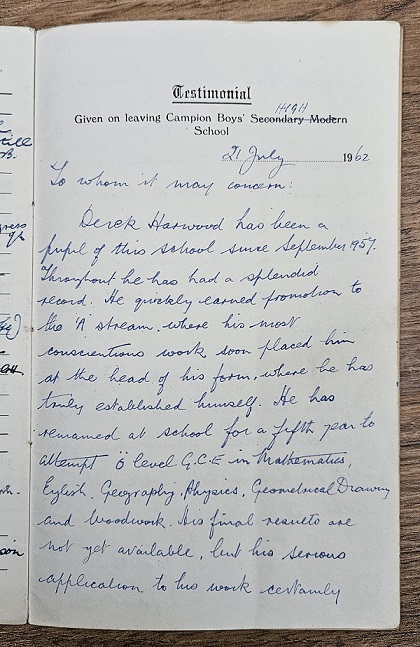 Testimonial
HIGH
Given on leaving Campion Boys' Secondary Modern
School
21 July 1962
To whom it may concern:
Derek Harwood has been a
pupil of this school since September 1957.
Throughout he has had a splendid
record. He quickly earned promotion to
the 'A' stream, where his most
conscientious work soon placed him
at the head of his form, where he has
truly established himself. He has
remained at school for a fifth year to
attempt 'O' level G.C.E in Mathematics,
English, Geography, Physics, Geometrical Drawing
and Woodwork. His final results are
not yet available, but his serious
application to his work certainly